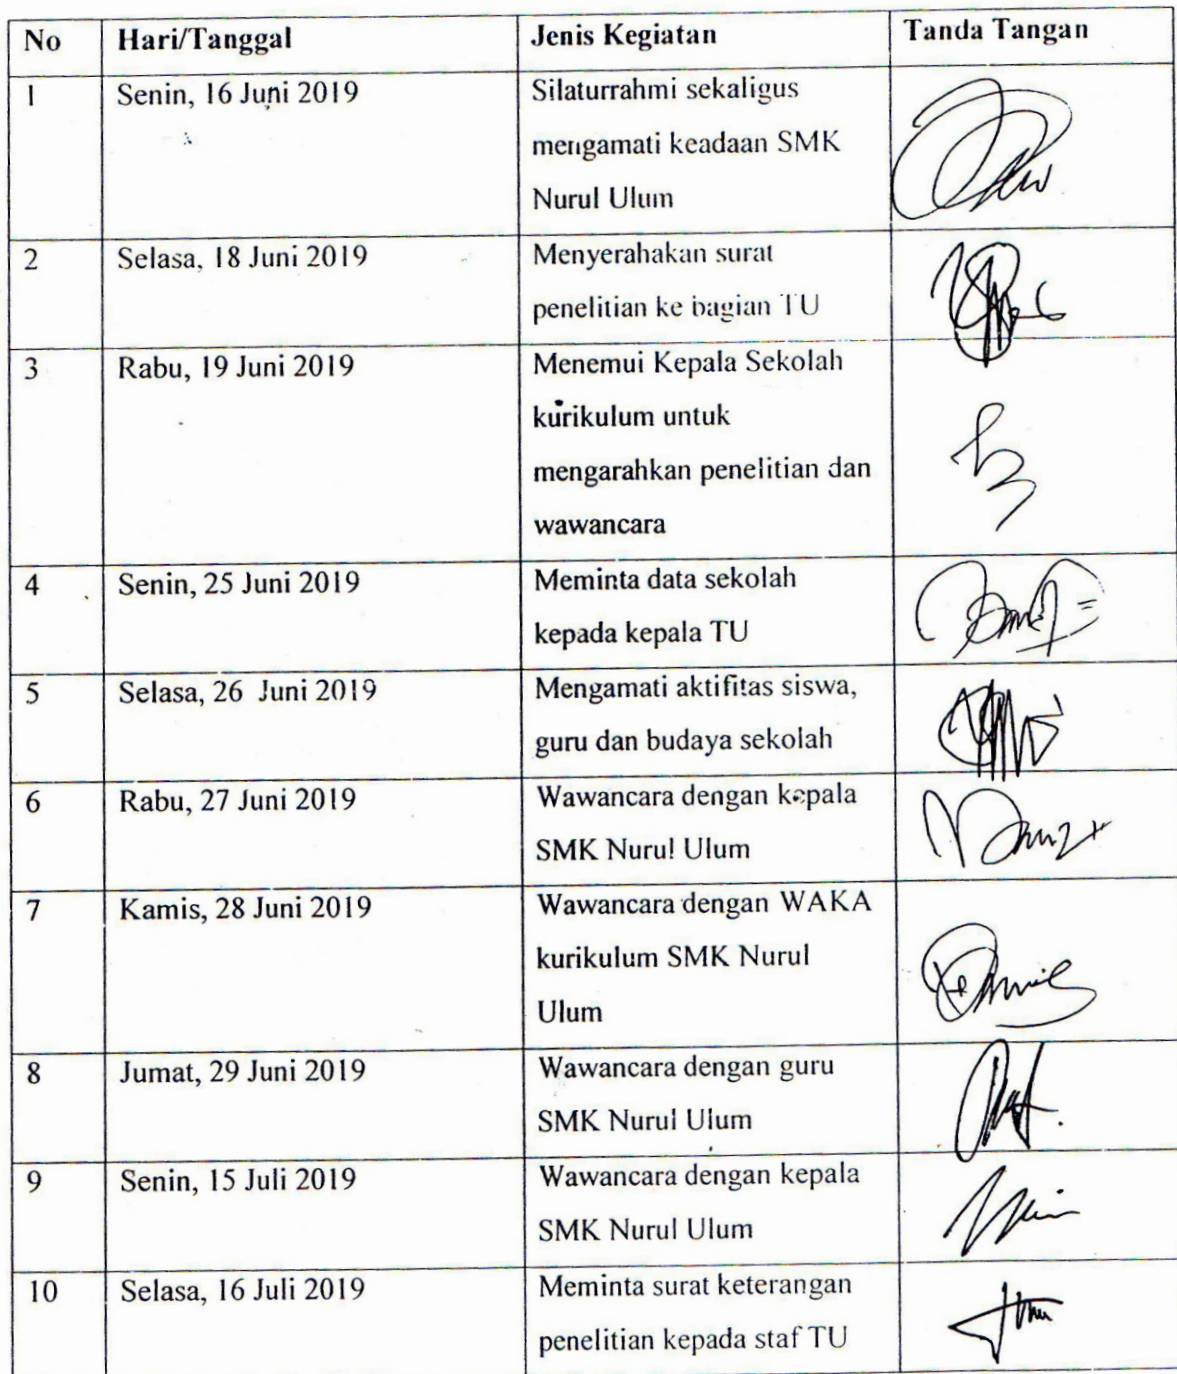 No Hari/Tanggal Jenis Kegiatan Tanda Tangan
1 Senin, 16 Juni 2019 Silaturrahmi sekaligus
mengamati keadaan SMK
Nurul Ulum
2 Selasa, 18 Juni 2019 Menyerahakan surat
penelitian ke bagian TU
3 Rabu, 19 Juni 2019 Menemui Kepala Sekolah
kurikulum untuk
mengarahkan penelitian dan
wawancara
4 Senin, 25 Juni 2019 Meminta data sekolah
kepada kepala TU
5 Selasa, 26 Juni 2019 Mengamati aktifitas siswa,
guru dan budaya sekolah
6 Rabu, 27 Juni 2019 Wawancara dengan kepala
SMK Nurul Ulum
7 Kamis, 28 Juni 2019 Wawancara dengan WAKA
kurikulum SMK Nurul
Ulum
8 Jumat, 29 Juni 2019 Wawancara dengan guru
SMK Nurul Ulum
9 Senin, 15 Juli 2019 Wawancara dengan kepala
SMK Nurul Ulum
10 Selasa, 16 Juli 2019 Meminta surat keterangan
penelitian kepada staf TU